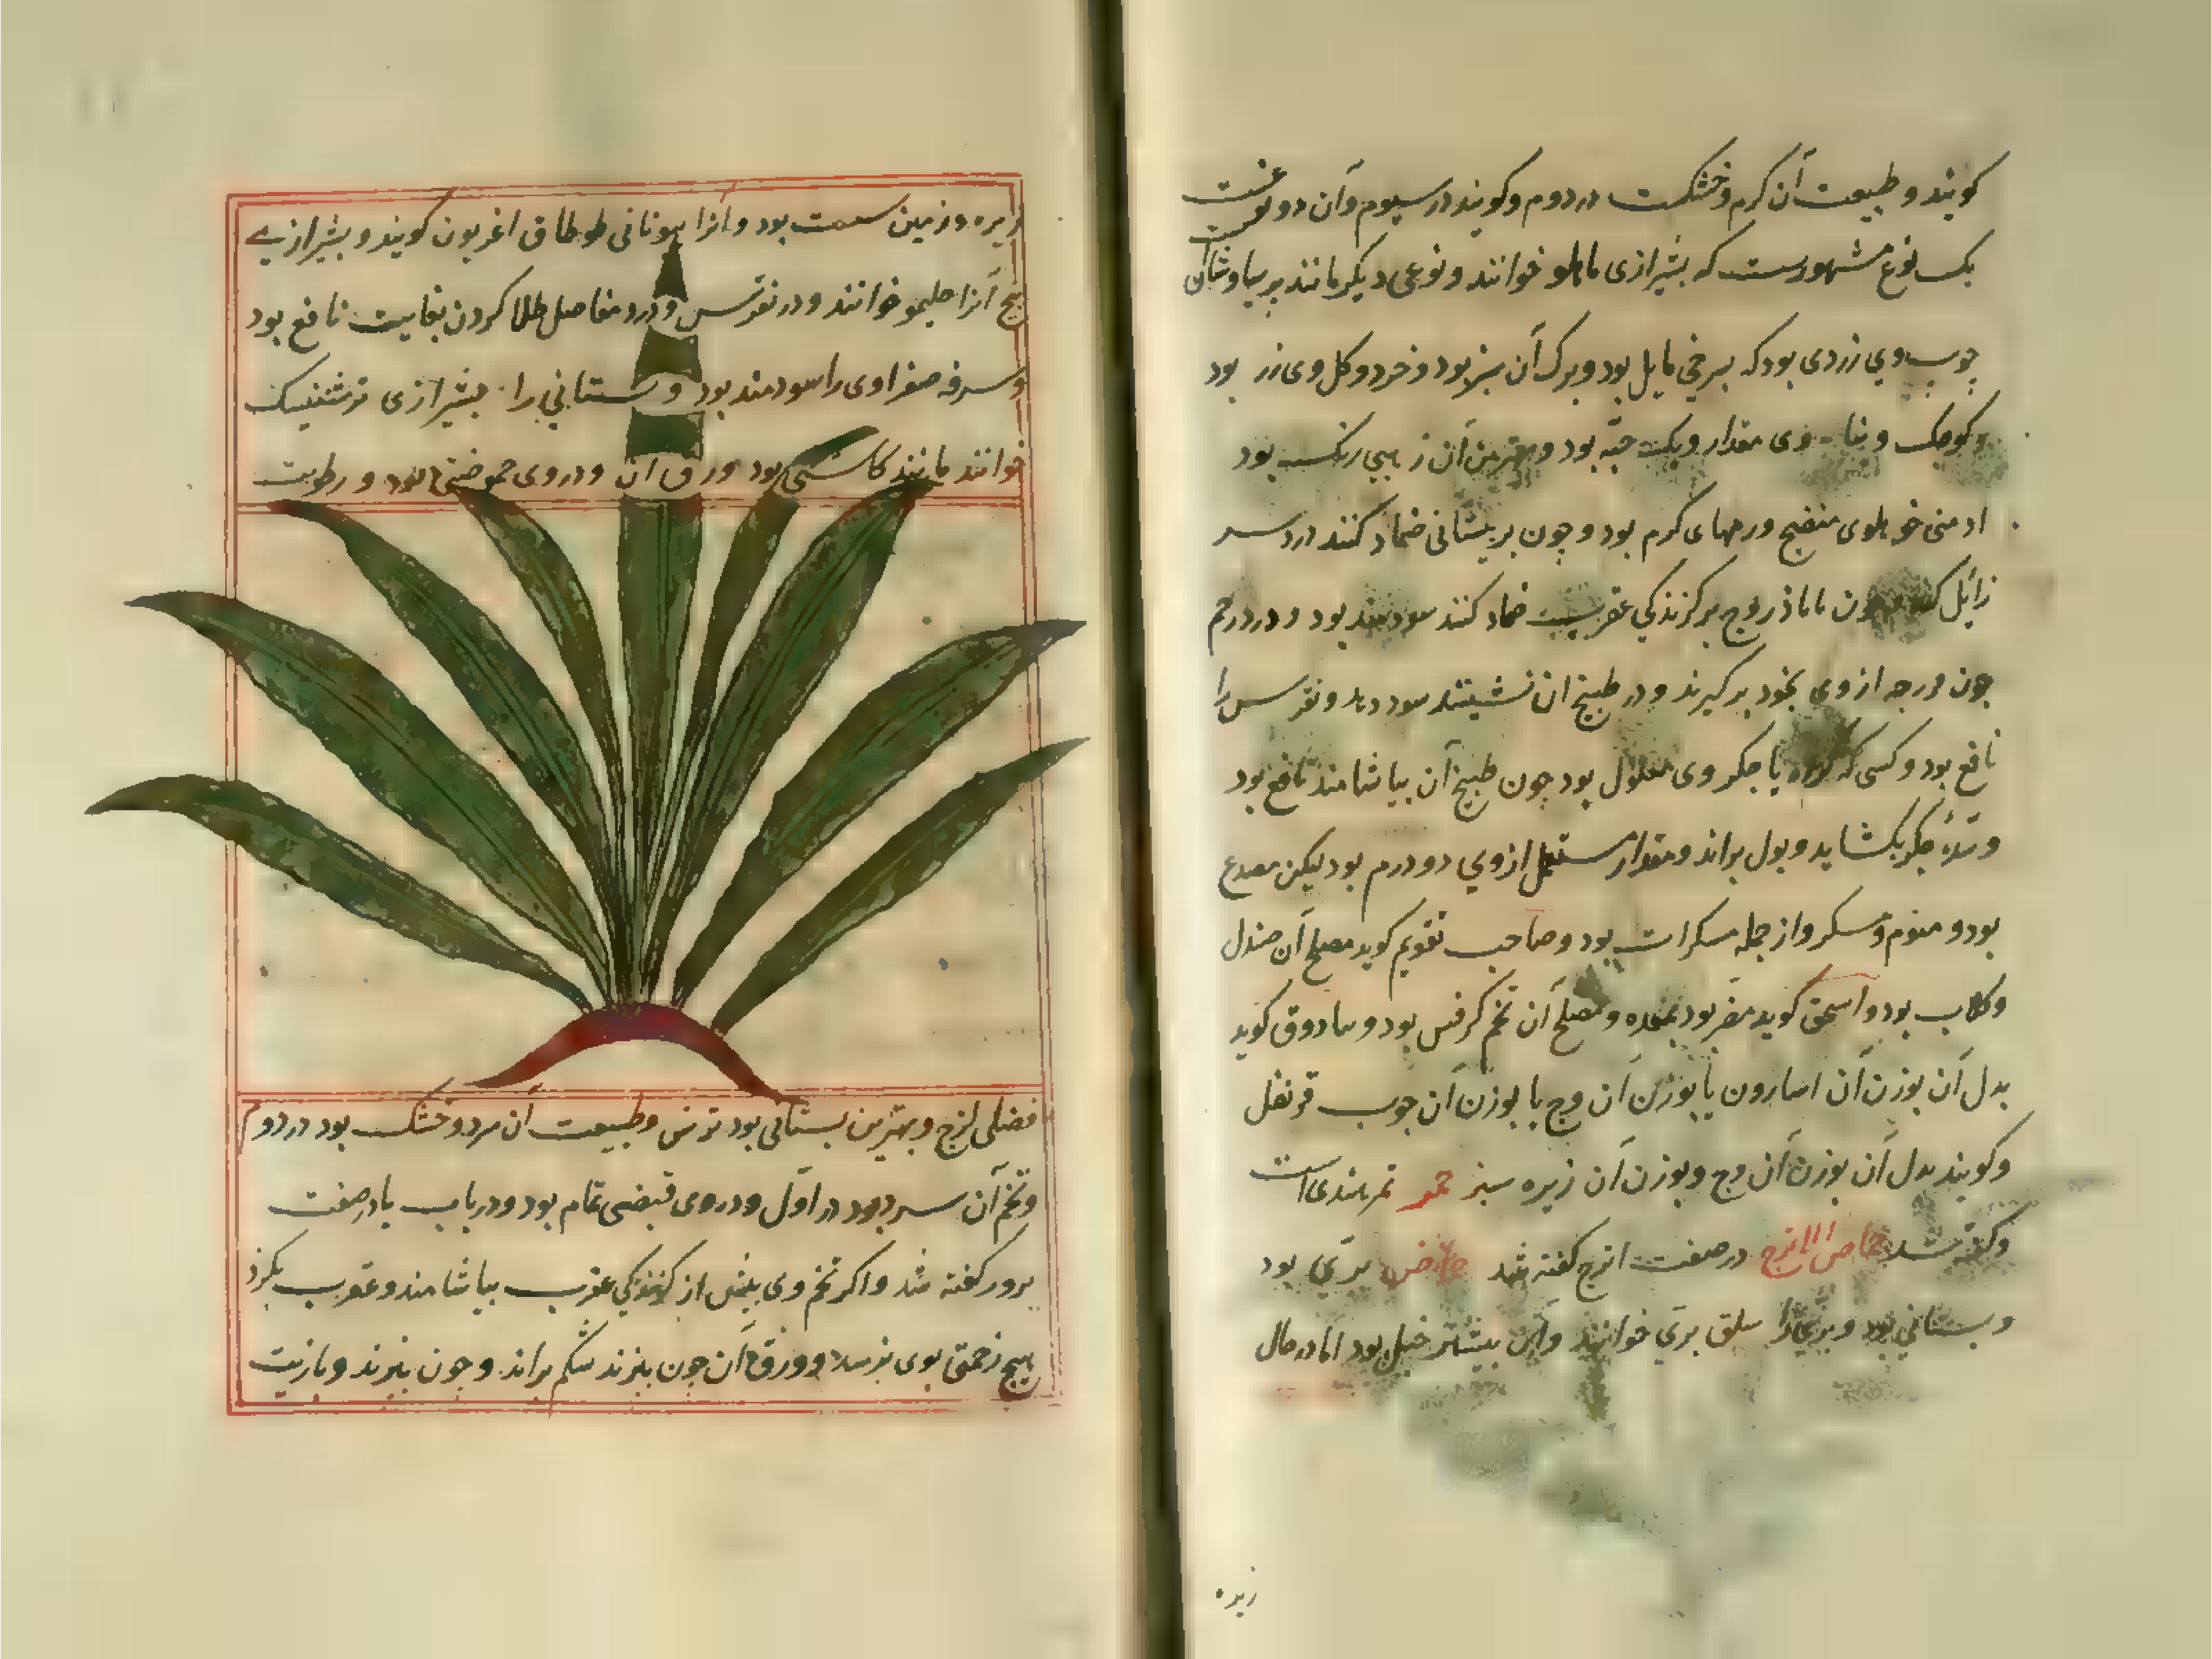 کویند و طبیعت آن کرم و خشکست در دوم و کویند در سیوم و آن دو نوعست
یک نوع مشهورست که بشیرازی ماملو خوانند و نوعی دیکر مانند پرسیاوشان
چوب وی زردی بود که بسرخی مایل بود و برک آن سبز بود و خرد و کل وی زرد بود
و کوچک و وی مقدار و یک حبّه بود و بهترین آن ذهبی رنک بود
ارمنی خوشبوی منضج ورمهای کرم بود و چون بر پیشانی ضماد کنند درد سر
زایل کند و چون با باذروج بر کزندکی عقرب ضماد کنند سودمند بود و درد رحم
چون فرزجه از وی بخود بر کیرند و در طبیخ ان نشینند سود دهد و نقرس را
نافع بود و کسی که کرده یا جکر وی معلول بود چون طبیخ آن بیاشامند نافع بود
و سدّهٔ جکر بکشاید و بول براند و مقدار مستعمل از وی دو درم بود لیکن مصدع
بود و منوم و مسکر و از جمله مسکرات بود و صاحب تقویم کوید مصلح آن صندل
و کلاب بود و اسحق کوید مضر بود بمعده و مصلح آن تخم کرفس بود و سادوق کوید
بدل آن بوزن آن اسارون یا بوزن آن وج یا بوزن آن چوب قرنفل
و کویند بدل آن بوزن آن وج و بوزن آن زیره سبز حمر تمر هندی است
و کفته شد حماض الاترج در صفت اترج کفته شد حماض بری بود
و بستانی بود و بری را سلق بری خوانند و آن بیشتر جبلی بود اما در حال
زیره
زیره و زمین سمت بود و آنرا بیونانی طوطاق اغریون کویند و بشیرازی
بیخ آنرا حلیمو خوانند و در نقرس و درد مفاصل طلا کردن بغایت نافع بود
و سرفه صفراوی را سودمند بود و بستانی را بشیرازی ترشنیک
خوانند مانند کاسنی بود ورق آن و در وی حموضتی بود و رطوبت
فضلی لزج و بهترین بستانی بود ترش و طبیعت آن سرد و خشک بود در دوم
و تخم آن سرد بود در اوّل و در وی قبضی تمام بود و در باب بادر صفت
برور کفته شد و اکر تخم وی پیش از کزندکی عقرب بیاشامند و عقرب بکزد
هیچ زحمتی بوی نرسد و ورق آن چون بپزند شکم براند و چون بپزند و با زیت